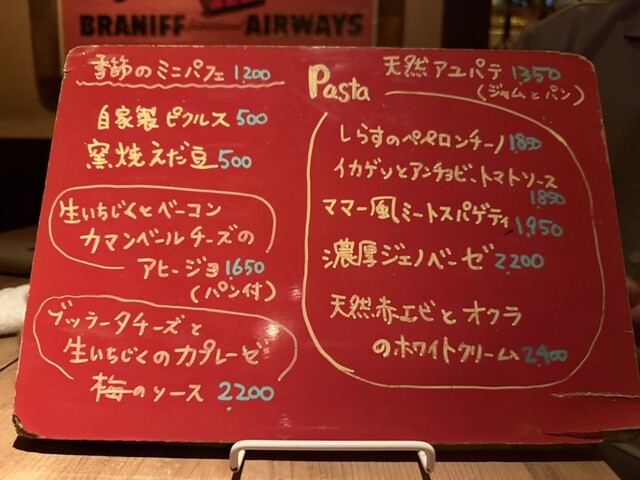 BRANIFF AIRWAYS
季節のミニパフェ 1200
自家製ピクルス 500
窯焼えだ豆 500
生いちじくとベーコン
カマンベールチーズの
アヒージョ 1650
(パン付)
ブッラータチーズと
生いちじくのカプレーゼ
梅のソース 2200
天然アユパテ 1350
(ジャムとパン)
Pasta
しらすのペペロンチーノ 1850
イカゲソとアンチョビ、トマトソース
1850
ママー風ミートスパゲティ
1,950
濃厚ジェノベーゼ 2,200
天然赤エビとオクラ
のホワイトクリーム 2,400